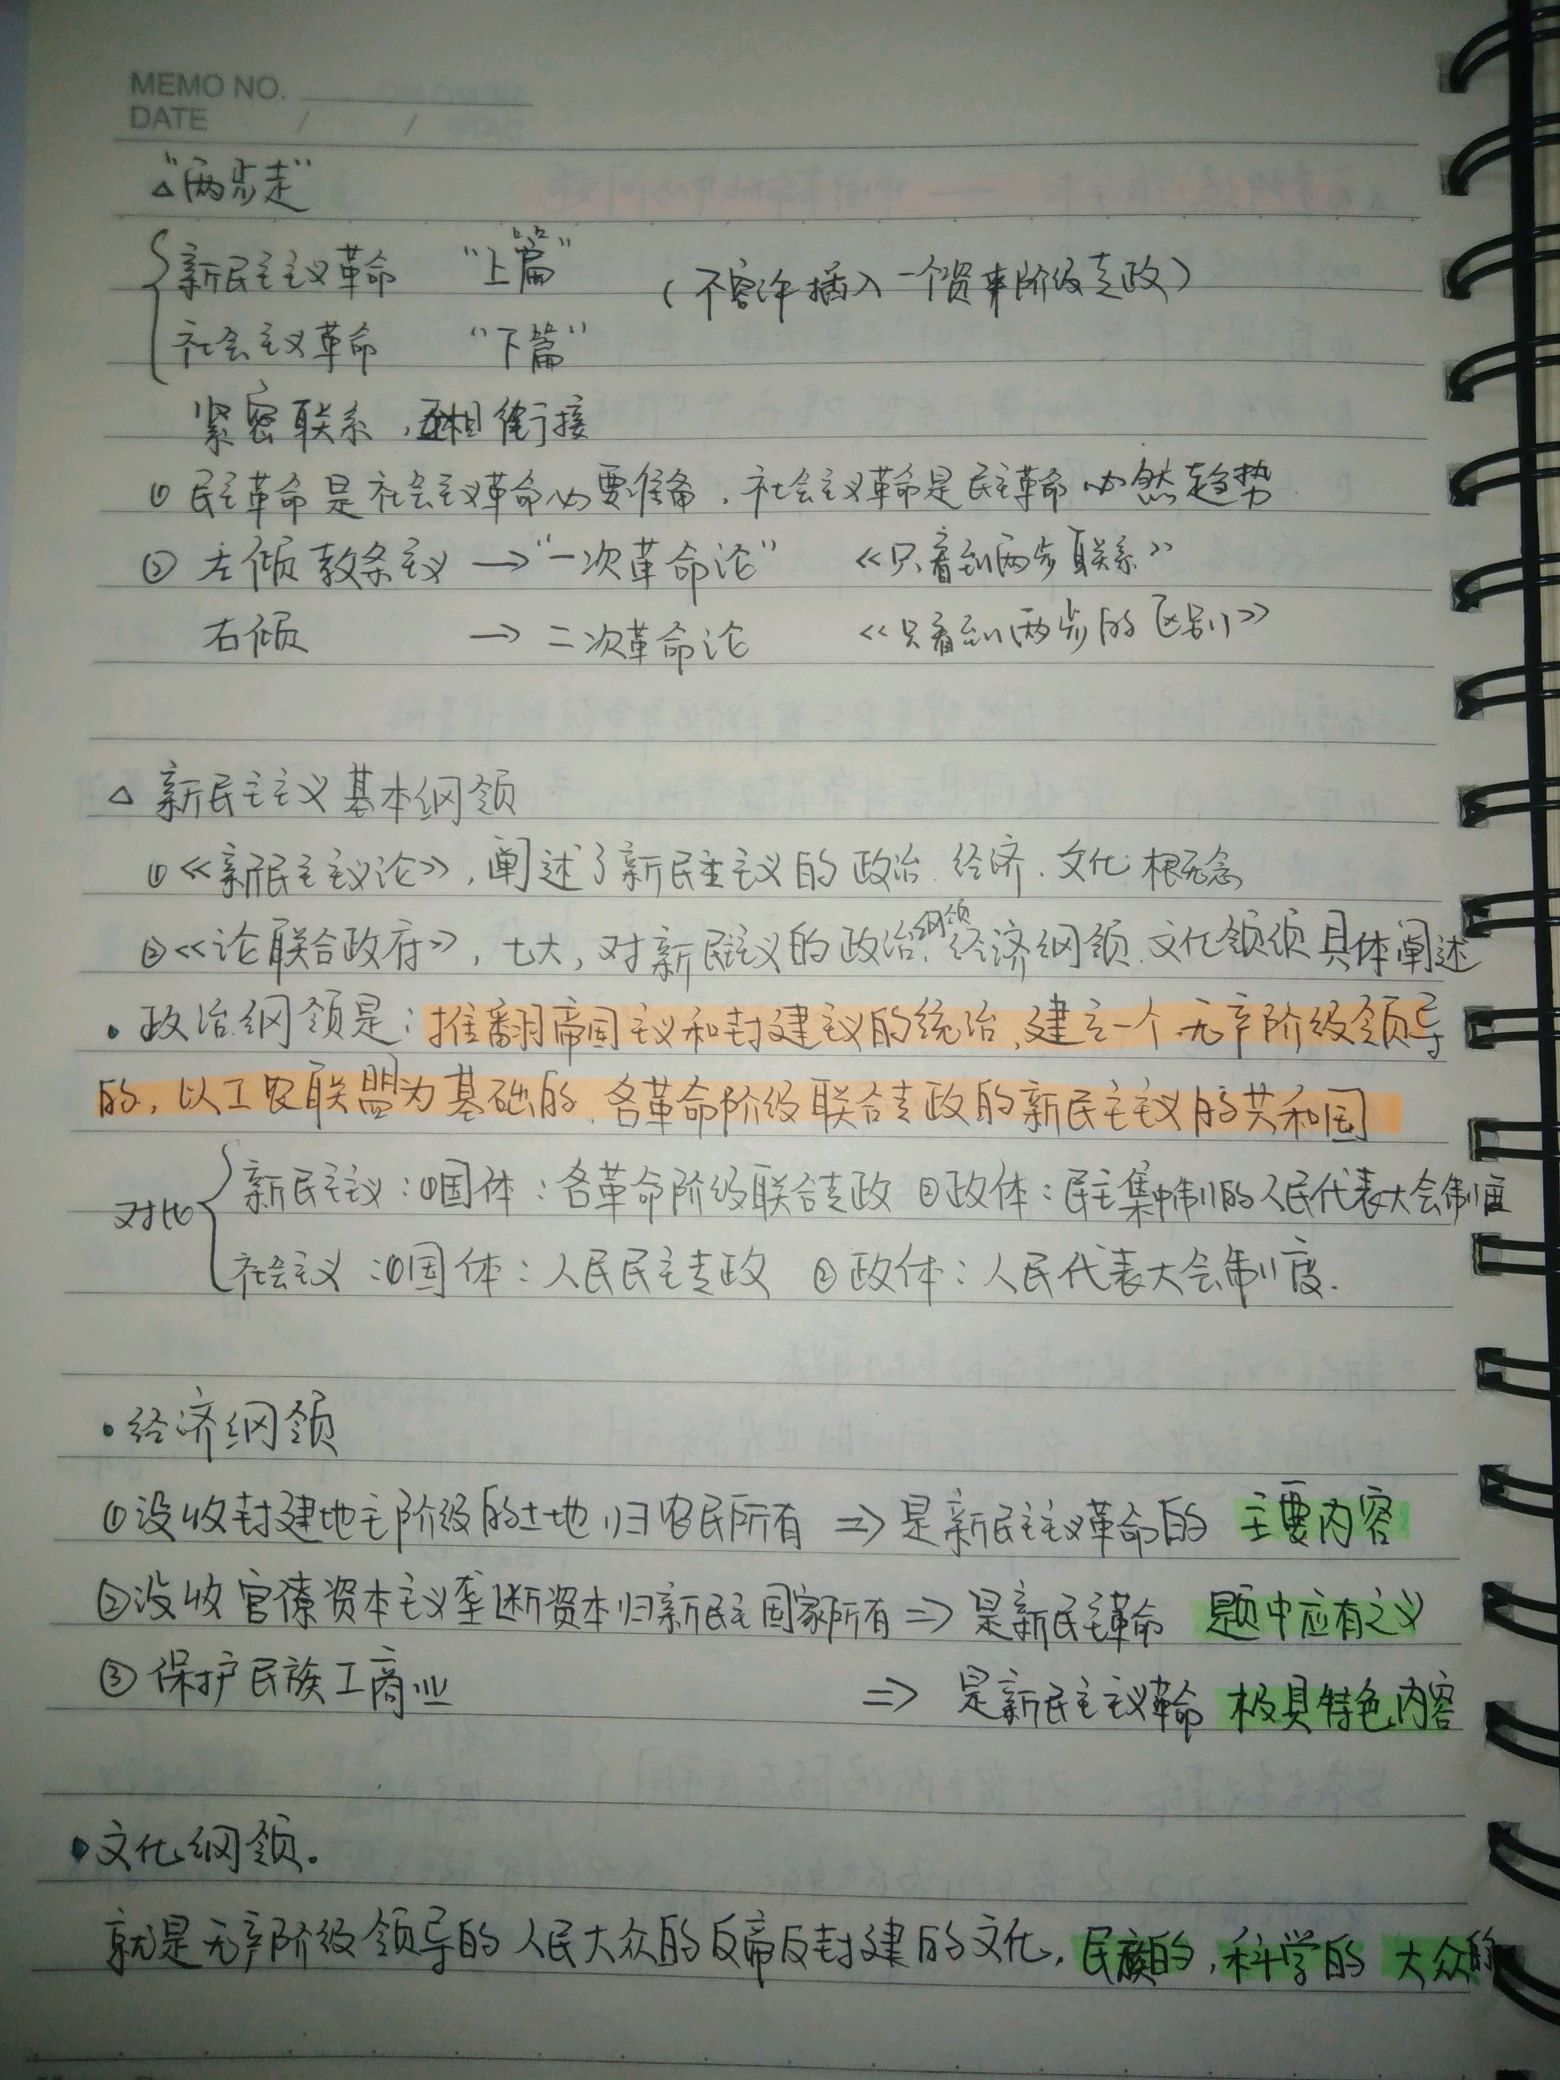 MEMO NO.
DATE / /
△ "两步走"
新民主主义革命 "上篇" (不容许插入一个资本阶级专政)
社会主义革命 "下篇"
紧密联系，互相衔接
① 民主革命是社会主义革命必要准备，社会主义革命是民主革命必然趋势
② 左倾教条主义 → "一次革命论" 《只看到两步联系》
右倾 → 二次革命论 《只看到两步的区别》
△ 新民主主义基本纲领
①《新民主主义论》，阐述了新民主主义的政治、经济、文化概念
②《论联合政府》，七大，对新民主义的政治纲领、经济纲领、文化领须具体阐述
• 政治纲领是：推翻帝国主义和封建主义的统治，建立一个无产阶级领导
的，以工农联盟为基础的，各革命阶级联合专政的新民主主义的共和国
对比 新民主义：①国体：各革命阶级联合专政 ②政体：民主集中制的人民代表大会制度
社会主义：①国体：人民民主专政 ②政体：人民代表大会制度.
• 经济纲领
①没收封建地主阶级的土地归农民所有 ⇒ 是新民主主义革命的 主要内容
②没收官僚资本主义垄断资本归新民主国家所有 ⇒ 是新民主革命 题中应有之义
③保护民族工商业 ⇒ 是新民主主义革命 极具特色内容
• 文化纲领。
就是无产阶级领导的人民大众的反帝反封建的文化，民族的，科学的 大众的